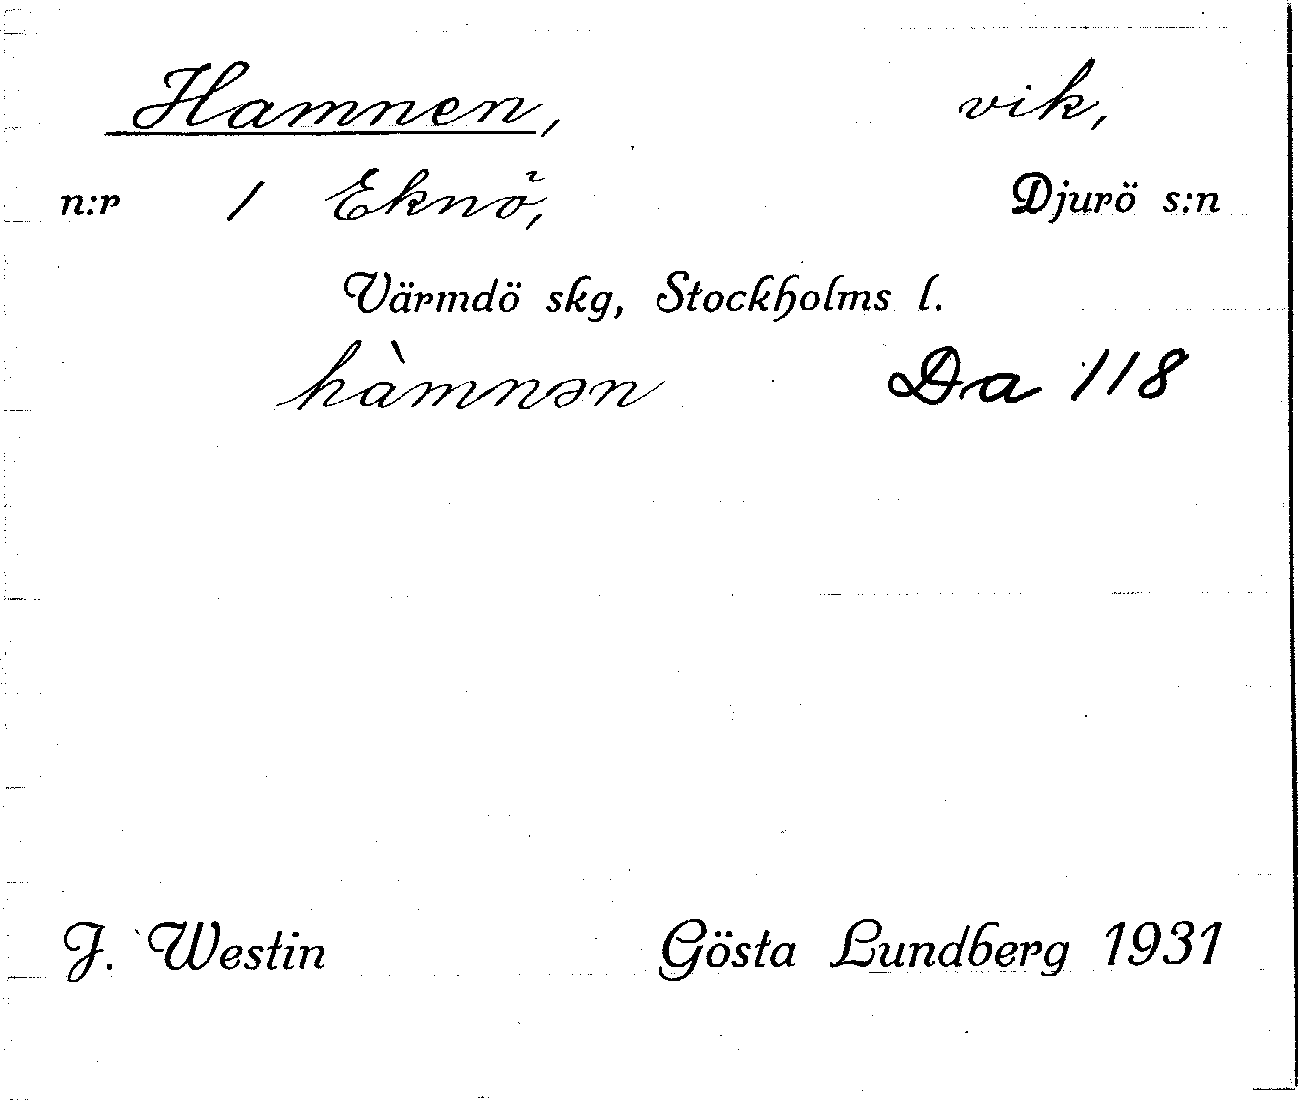 Hamnen, vik,
n:r 1 Eknö, Djurö s:n
Värmdö skg, Stockholms l.
hàmnən Da 118
J. Westin Gösta Lundberg 1931